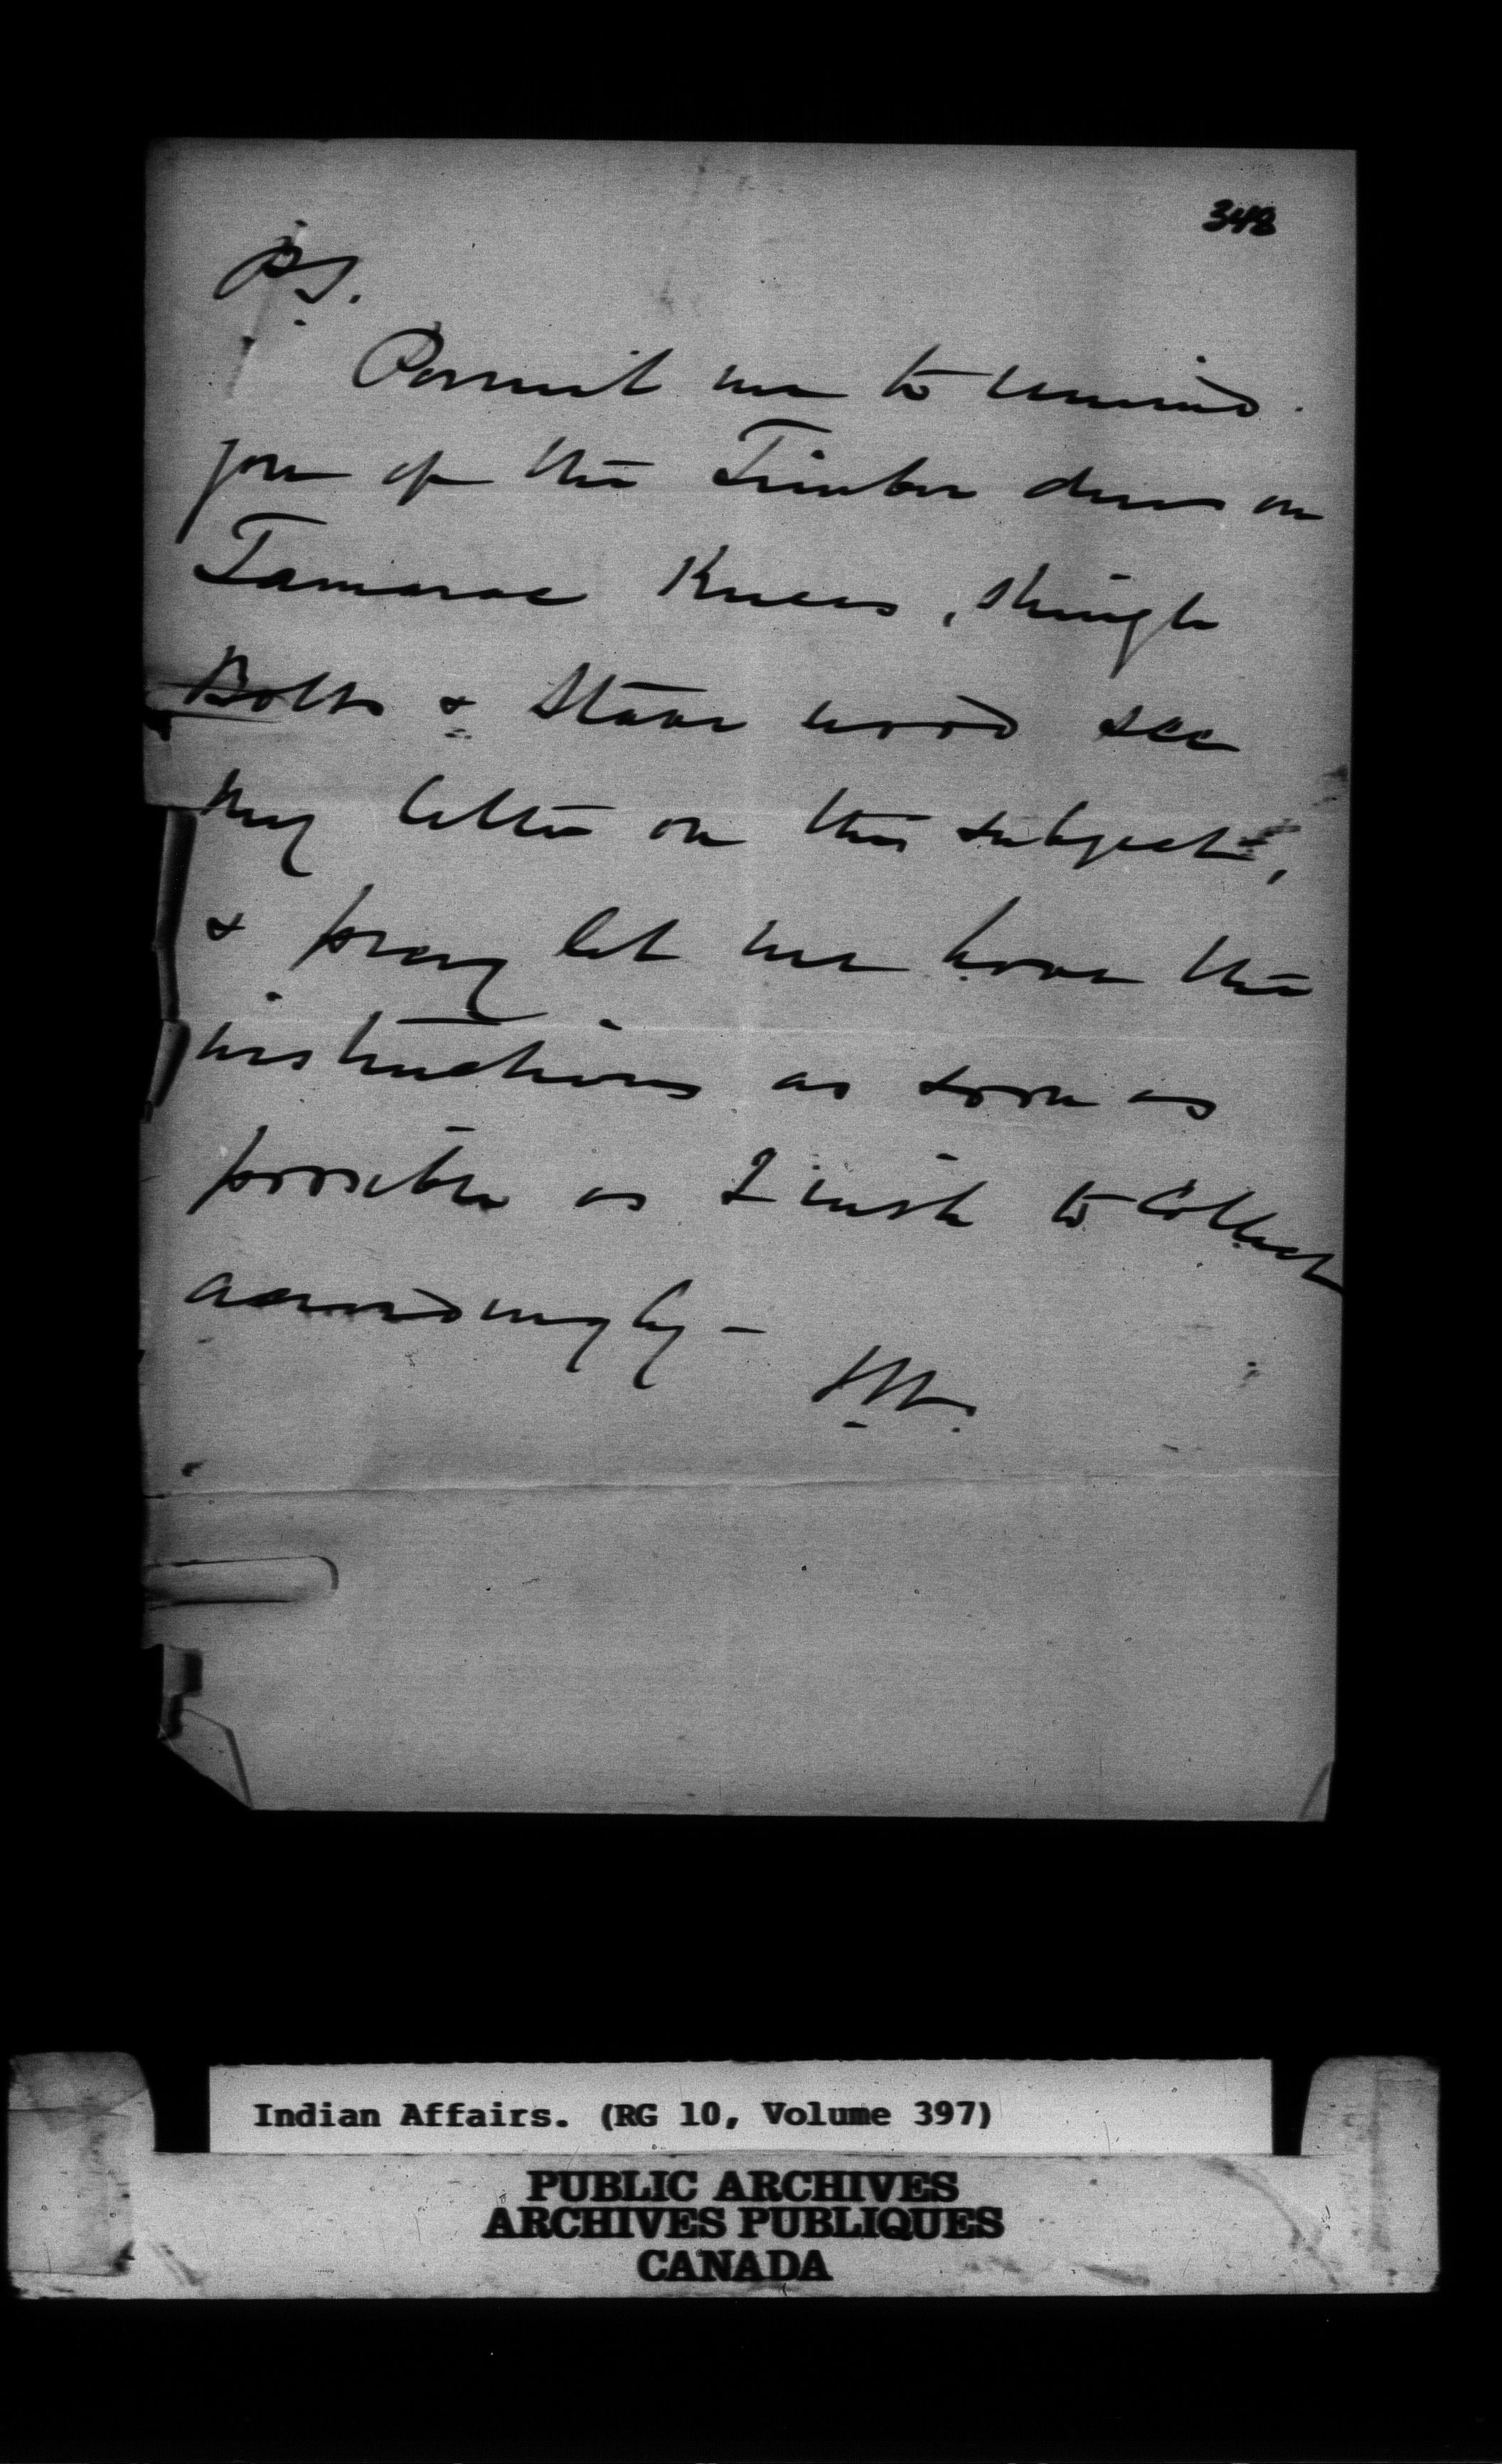 348
P.S.
Permit me to remind
you of the Timber dues on
Tamarac Knees, Shingle
Bolts & Stave wood see
my letter on this subject,
& pray let me have the
instructions as soon as
possible as I wish to Collect
accordingly –
Indian Affairs. (RG 10, Volume 397)
PUBLIC ARCHIVES
ARCHIVES PUBLIQUES
CANADA